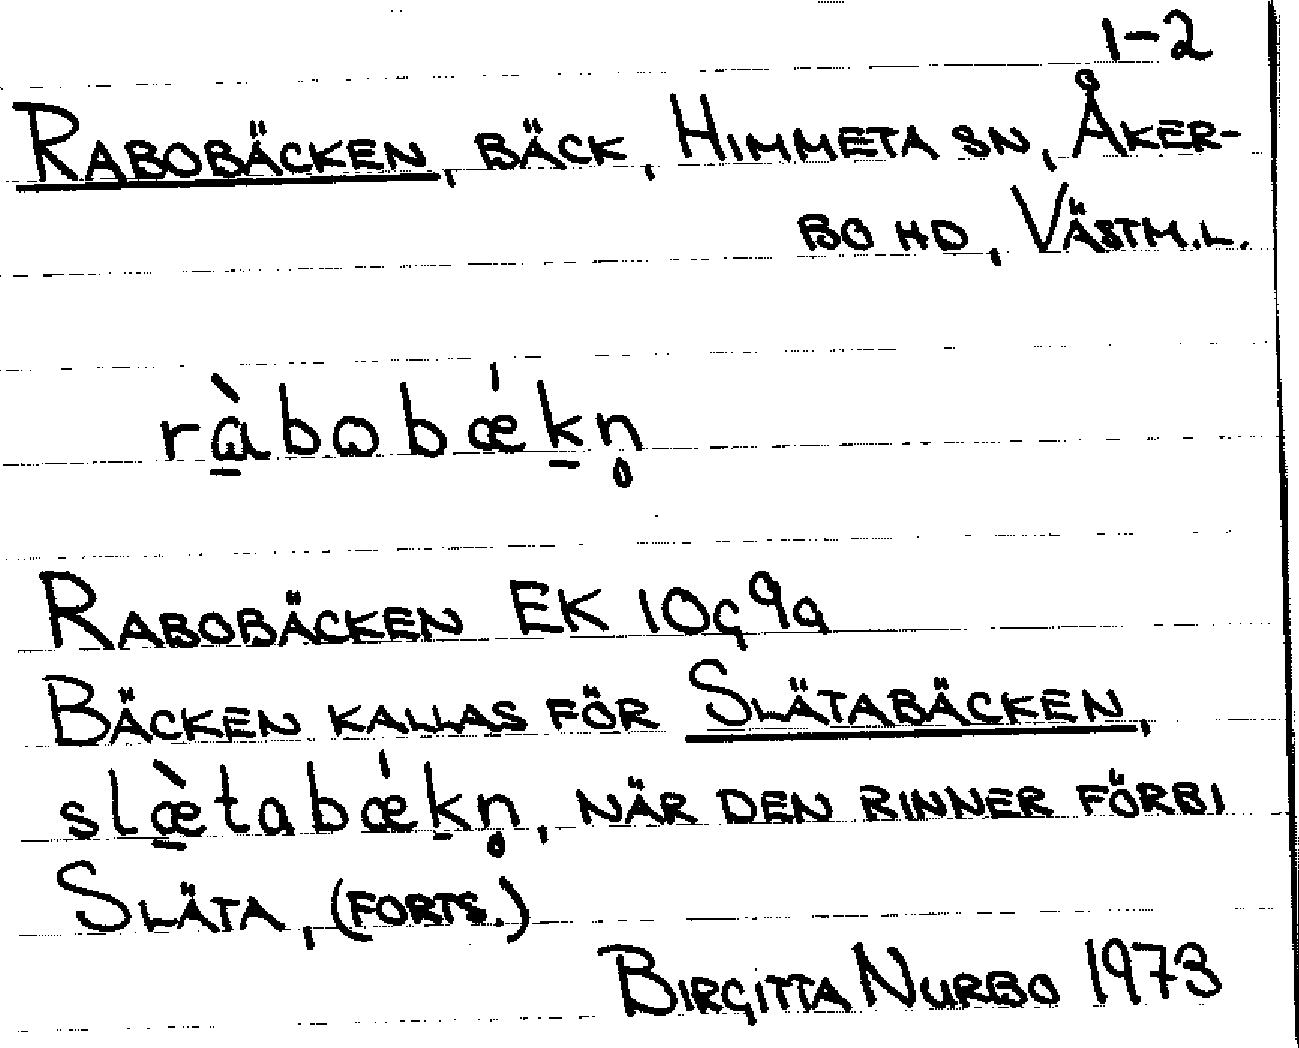 1-2
RABOBÄCKEN, BÄCK, HIMMETA SN, ÅKER-
BO HD, VÄSTM.L.
rɑ̱̀bobǽḵn̥
RABOBÄCKEN EK 10g9a
BÄCKEN KALLAS FÖR SLÄTABÄCKEN,
slæ̱̀tabǽḵn̥, NÄR DEN RINNER FÖRBI
SLÄTA, (FORTS.)
BIRGITTA NURBO 1973